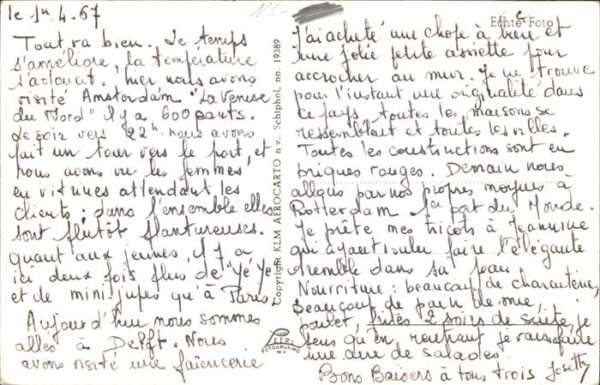 le 1er 4.67
Tout va bien. Le temps
s'améliore, la température
s'adoucit. hier nous avons
visité Amsterdam "La Venise
du Nord" Il y a 600 ponts.
Le soir vers 22h. nous avons
fait un tour vers le port, et
nous avons vu les femmes
en vitrines attendant les
clients; dans l'ensemble elles
sont plutôt plantureuses.
quant aux jeunes, il y a
ici deux fois plus de "Yé Yé"
et de mini-jupes qu'à Paris.
Aujourd'hui nous sommes
allés à Delft. Nous
avons visité une faïencerie
Copyright KLM AEROCARTO n.v. Schiphol, no. 19389
Echte Foto
J'ai acheté une chope à bière et
une jolie petite assiette pour
accrocher au mur. Je ne trouve
pour l'instant une originalité dans
ce pays, toutes les maisons se
ressemblent et toutes les villes.
Toutes les constructions sont en
briques rouges. Demain nous
allons par nos propres moyens à
Rotterdam 1er port du Monde.
Je prête mes tricots à Jeannine
qui ayant voulu faire l'élégante
tremble dans sa peau
Nourriture: beaucoup de charcuterie,
beaucoup de pain de mie,
poulet, frites 2 soirs de suite, je
sens qu'en rentrant je vais faire
une cure de salades.
Bons Baisers à tous trois Josette